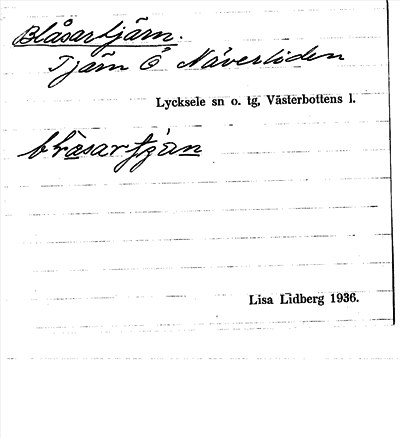 Blåsartjärn.
Tjärn Ö Näverliden
Lycksele sn o. tg, Västerbottens l.
blasartjän
Lisa Lidberg 1936.